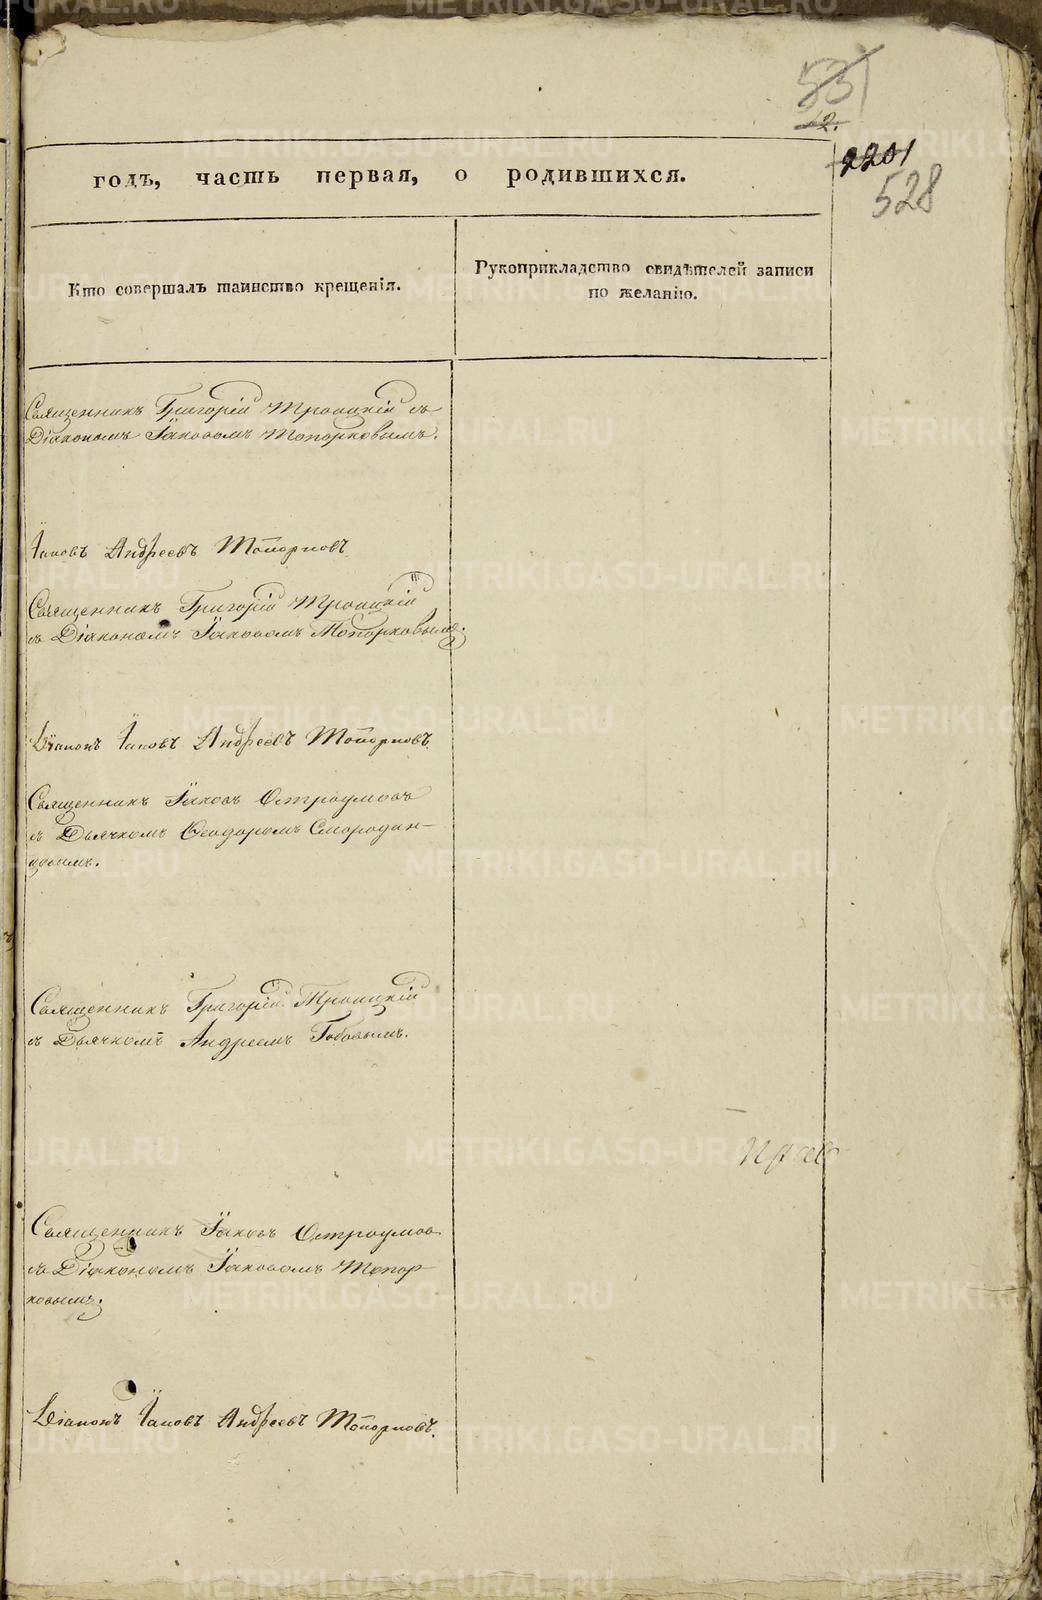 531
12.
2201
528
годъ, часть первая, о родившихся.
Кто совершалъ таинство крещенія.
Рукоприкладство свидѣтелей записи
по желанію.
Священникъ Григорій Троицкій съ
Діакономъ Іаковомъ Топорковымъ.
Іаковъ Андреевъ Топорковъ
Священникъ Григорій Троицкій
съ Діакономъ Іаковомъ Топорковымъ.
Діаконъ Іаковъ Андреевъ Топорковъ.
Священникъ Іаковъ Остроумовъ
съ Дьячкомъ Ѳеодоромъ Смородин-
цовымъ.
Священникъ Григорій Троицкій
съ Дьячкомъ Андреемъ Бобовымъ.
Священникъ Іаковъ Остроумов
съ Діакономъ Іаковомъ Топор-
ковымъ.
Діаконъ Іаковъ Андреевъ Топорковъ.
METRIKI.GASO-URAL.RU